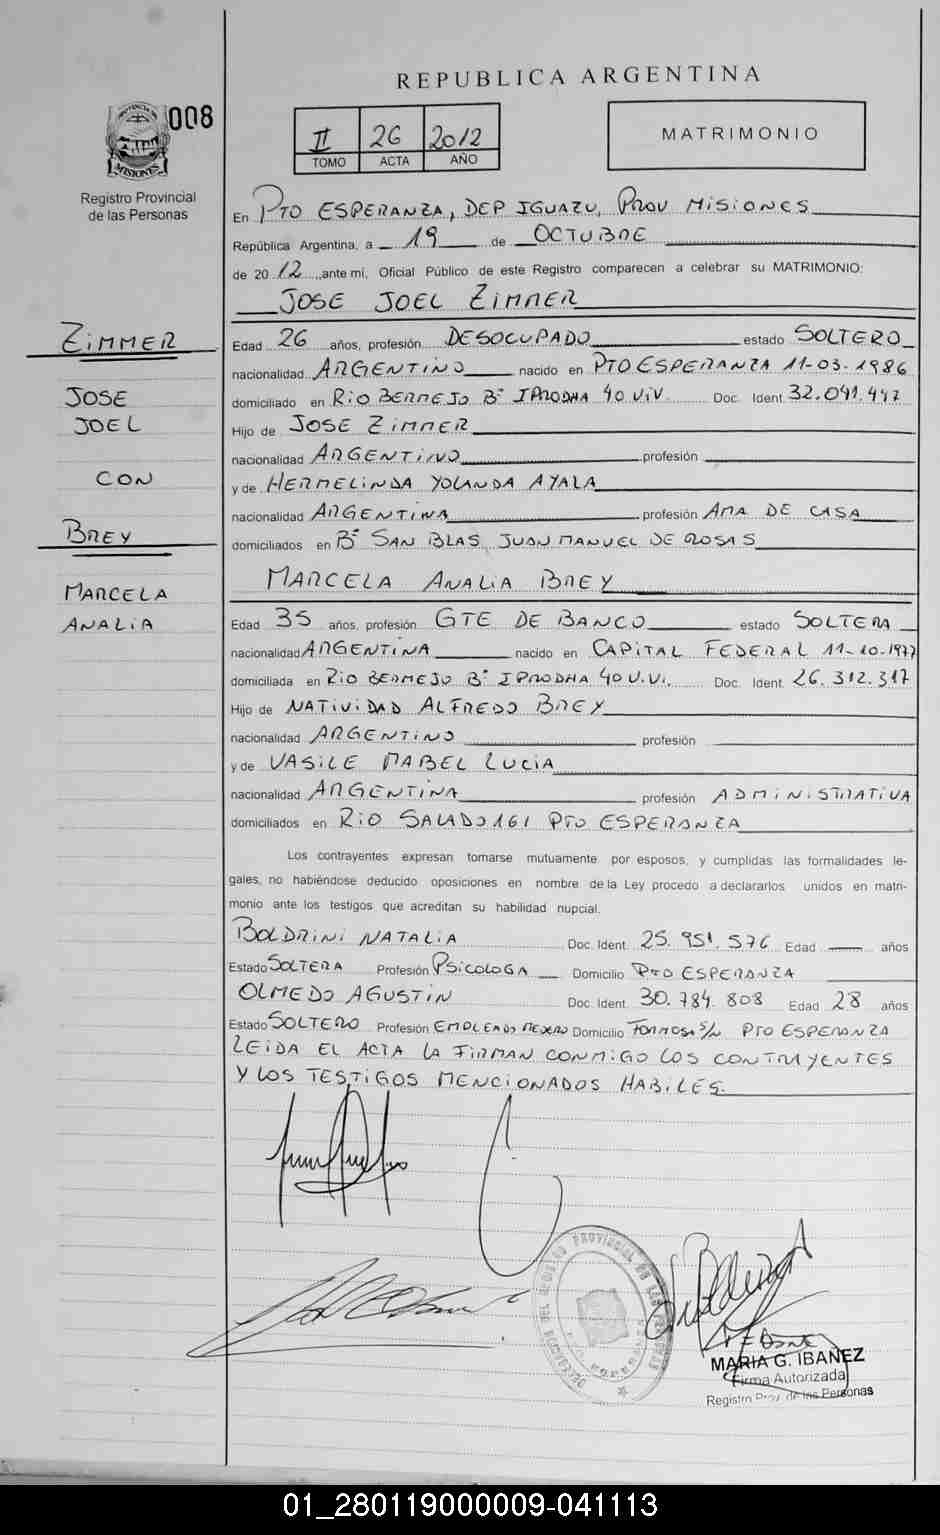 REPUBLICA ARGENTINA
008
II 26 2012
TOMO ACTA AÑO
MATRIMONIO
PROVINCIA DE
MISIONES
Registro Provincial
de las Personas
En PTO ESPERANZA, DEP IGUAZU, PROV MISIONES
República Argentina, a 19 de OCTUBRE
de 2012, ante mi, Oficial Público de este Registro comparecen a celebrar su MATRIMONIO:
JOSE JOEL ZIMMER
ZIMMER
JOSE
JOEL
CON
BREY
MARCELA
ANALIA
Edad 26 años, profesión DESOCUPADO estado SOLTERO
nacionalidad ARGENTINO nacido en PTO ESPERANZA 11-03-1986
domiciliado en RIO BERMEJO Bº IPRODHA 40 VIV. Doc. Ident. 32.041.447
Hijo de JOSE ZIMMER
nacionalidad ARGENTINO profesión
y de HERMELINDA YOLANDA AYALA
nacionalidad ARGENTINA profesión AMA DE CASA
domiciliados en Bº SAN BLAS JUAN MANUEL DE ROSAS
MARCELA ANALIA BREY
Edad 35 años, profesión GTE DE BANCO estado SOLTERA
nacionalidad ARGENTINA nacido en CAPITAL FEDERAL 11-10-1977
domiciliada en RIO BERMEJO Bº IPRODHA 40 V.Vi. Doc. Ident. 26.312.317
Hijo de NATIVIDAD ALFREDO BREY
nacionalidad ARGENTINO profesión
y de VASILE MABEL LUCIA
nacionalidad ARGENTINA profesión ADMINISTRATIVA
domiciliados en RIO SALADO 161 PTO ESPERANZA
Los contrayentes expresan tomarse mutuamente por esposos, y cumplidas las formalidades le-
gales, no habiéndose deducido oposiciones en nombre de la Ley procedo a declararlos unidos en matri-
monio ante los testigos que acreditan su habilidad nupcial.
BOLDRINI NATALIA Doc. Ident. 25.951.576 Edad años
Estado SOLTERA Profesión PSICOLOGA Domicilio PTO ESPERANZA
OLMEDO AGUSTIN Doc. Ident. 30.784.808 Edad 28 años
Estado SOLTERO Profesión EMPLEADO Domicilio FORMOSA S/N PTO ESPERANZA
LEIDA EL ACTA LA FIRMAN CONMIGO LOS CONTRAYENTES
Y LOS TESTIGOS MENCIONADOS HABILES.
MARIA G. IBAÑEZ
Firma Autorizada
Registro Prov. de las Personas
01_280119000009-041113